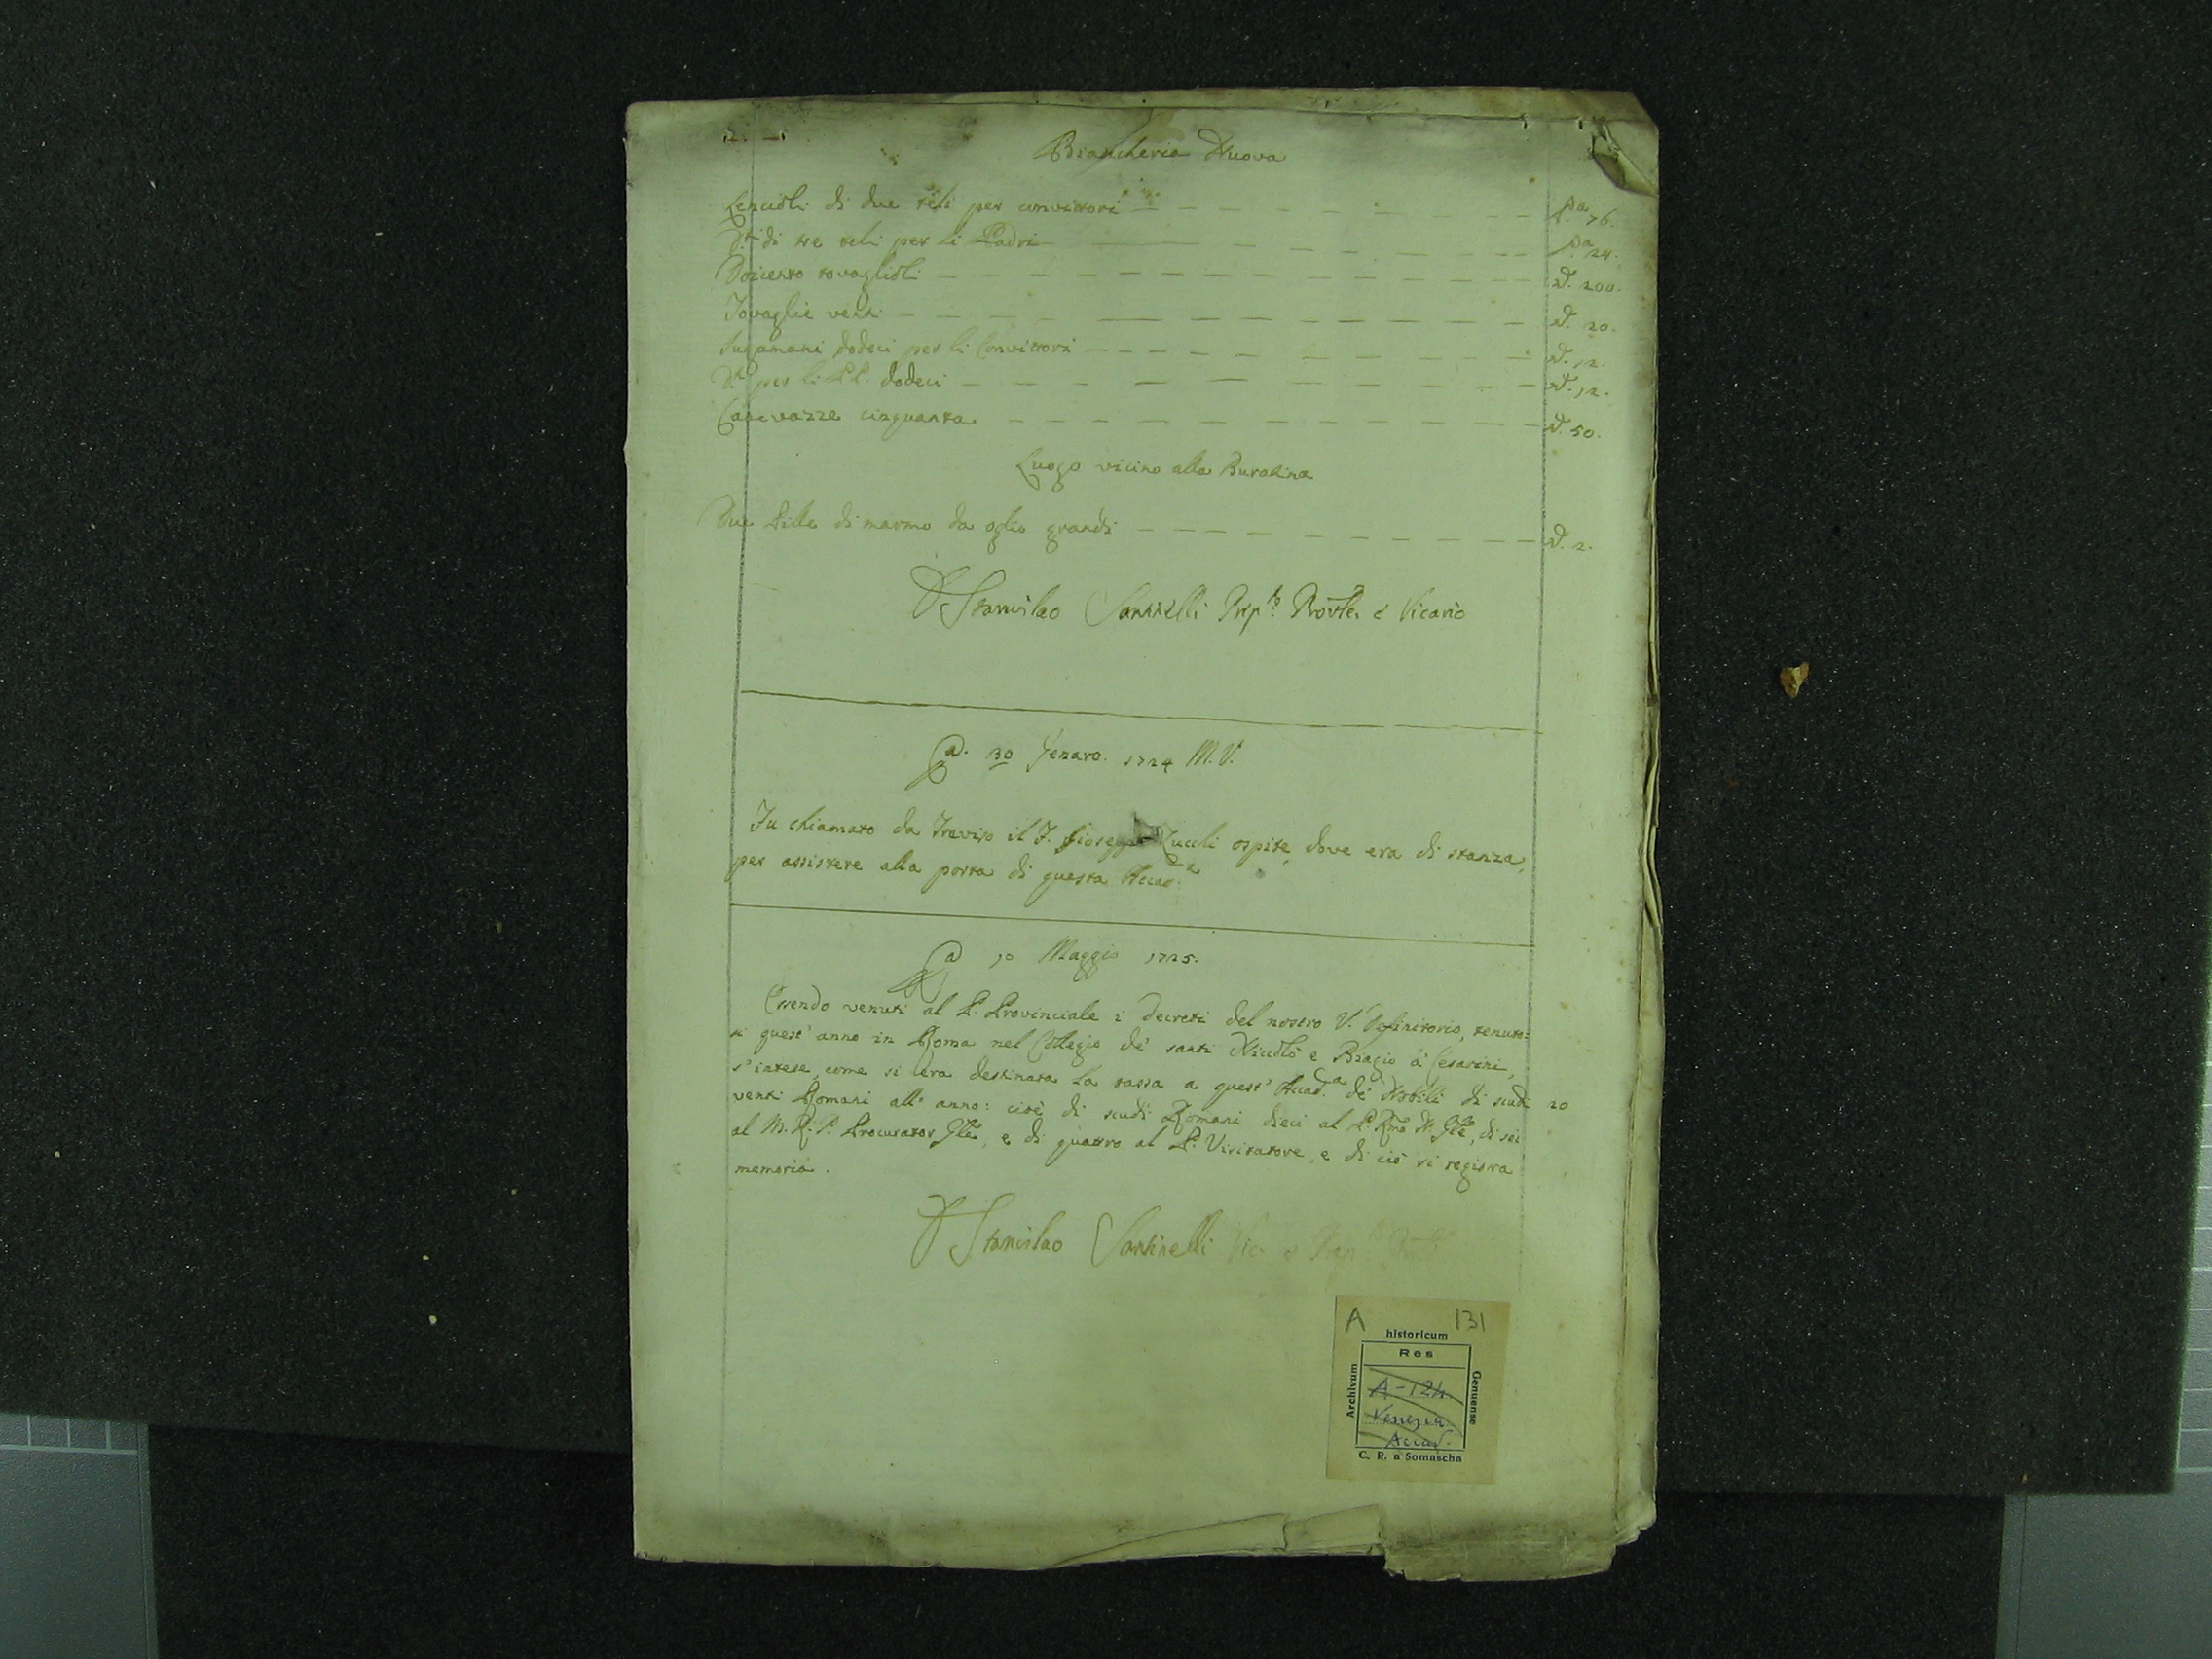 Biancheria Nuova
Lenzuoli di due teli per convittori — P.a 76.
D.ti di tre teli per li Padri — P.a 24.
Doicento tovaglioli — N. 200.
Tovaglie venti — N. 20.
Sugamani dodeci per li Convittori — N. 12.
D.i per li PP. dodeci — N. 12.
Canevazze cinquanta — N. 50.
Luogo vicino alla Buratina
Due Pille di marmo da oglio grandi — N. 2.
D Stanislao Santinelli Prep.to Prov.le e Vicario
A. 30 Genaro. 1724 M.V.
Fu chiamato da Treviso il F. Gioseppe Zucchi ospite, dove era di stanza,
per assistere alla porta di questa Accad.a
A 10 Maggio 1725.
Essendo venuti al P. Provinciale i decreti del nostro V. Definitorio, tenuto=
si quest' anno in Roma nel Collegio de' santi Nicolò e Biagio a' Cesarini,
s' intese, come si era destinata la tassa a quest' Accad.a de' Nobili di scudi 20
venti Romani all' anno: cioè di scudi Romani dieci al P. Rmo N. Gle, di sei
al M. R. P. Procurator Gle, e di quattro al P. Visitatore, e di ciò si registra
memoria.
D Stanislao Santinelli Vic. e
A 131
historicum
Res
Archivum
Genuense
A-124
Venezia
Accad.
C. R. a Somascha